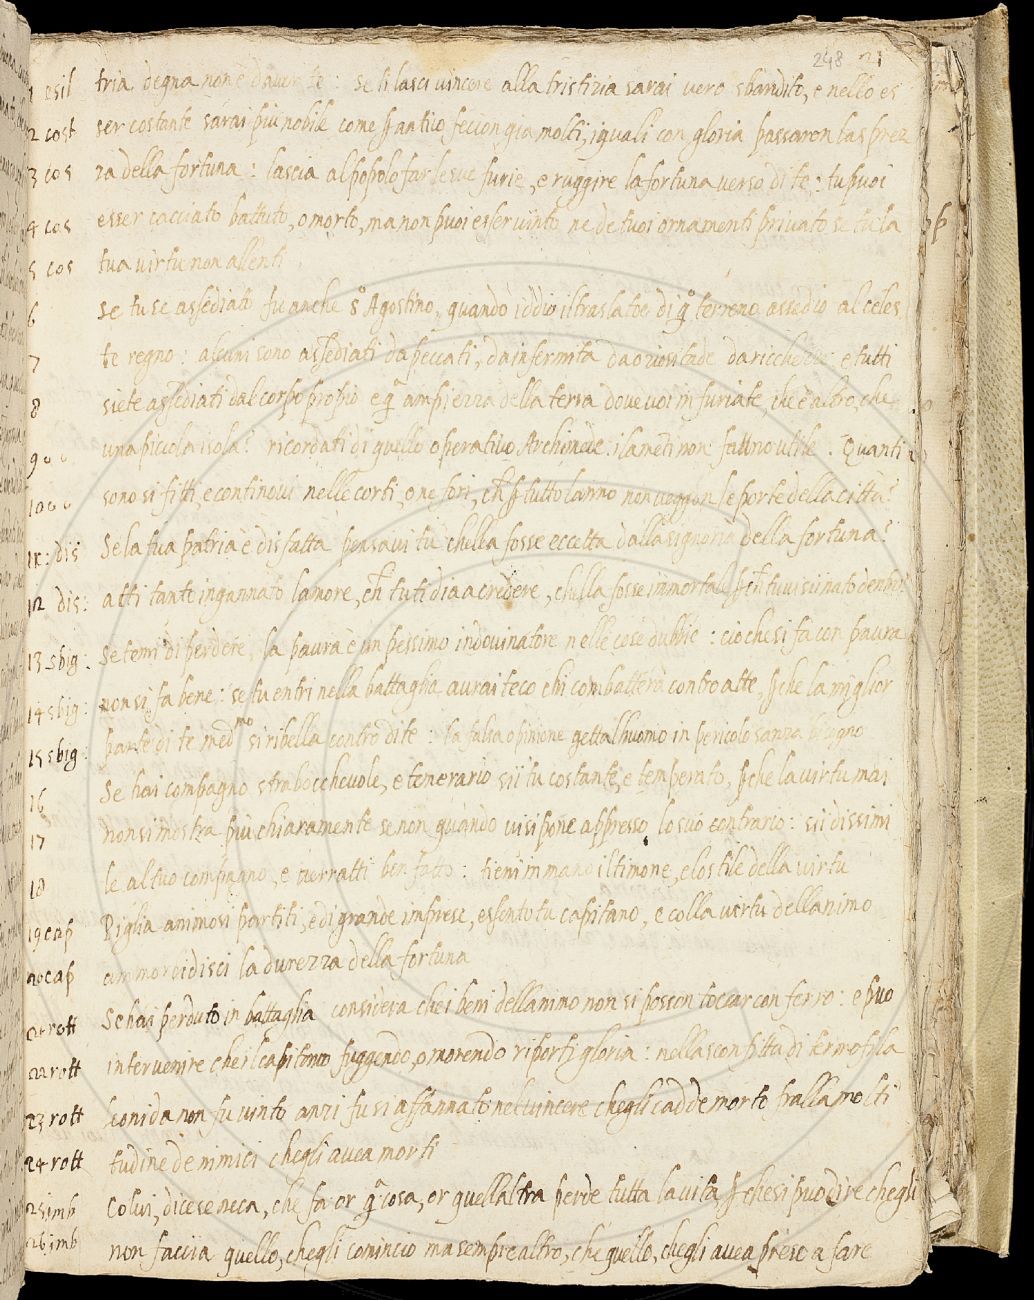 248 21
1 esil tria degna non è d'aver te: se ti lasci vincere alla tristizia sarai vero sbandito, e nello es
2 cost ser costante sarai più nobile come p antivo feccion gia molti, i quali con gloria passaron l'asprez
3 cos za della fortuna: lascia al popolo far le sue furie, e ruggire la fortuna verso di te: tu puoi
4 cos esser cacciato battuto, o morto, ma non puoi esser vinto ne de tuoi ornamenti privato se tu la
5 cos tua virtu non allenti
6 Se tu se assediato fu anche s. Agostino, quando iddio il traslatoe di q.o terreno assedio al celes
7 te regno: alcuni sono assediati da peccati, da infermità da oziositade da ricchezze e tutti
8 siete assediati dal corpo propio e q.a ampiezza della terra dove voi infuriate, che è altro, che
9 una picola isola? ricordati di quello operativo Archimede non utile. Quanti
10 sono si fitti, e continovi nelle corti, o ne fori, ch p tutto lanno non veggon le porte della citta?
11: dis Se la tua patria è disfatta pensavi tu chella fosse eccetta dalla signoria della fortuna?
12 dis: atti tanto ingannato lamore, ch tu ti dia a credere, chella fosse immortale p ch tu vi sii nato dentro?
13 sbig: Se temi di perdere, la paura è un pessimo indovinatore nelle cose dubbie: cio che si fa con paura
14 sbig: non si fa bene: se tu entri nella battaglia avrai teco chi combatterà contro atte, p che la miglior
15 sbig: parte di te med.mo si ribella contro di te: la falsa opinione getta l'huomo in pericolo sanza bisogno
16 Se hai compagno strabocchevole, e temerario sii tu costante, e temperato, p che la virtu mai
17 non si mostra più chiaramente se non quando vi si pone appresso lo suo contrario: sii dissimi
18 le al tuo compagno, e verratti ben fatto: tieni in mano il timone, e lo stile della virtu
19 cap Piglia animosi partiti, e di grande imprese, essento tu capitano, e colla vertu dellanimo
20 cap ammorvidisci la durezza della fortuna
21 rott Se hai perduto in battaglia considera che i beni dellanimo non si posson toccar con ferro: e puo
22 rott intervenire che il capitano fuggendo, o morendo riporti gloria: nella sconfitta di termofila
23 rott Leonida non fu vinto anzi fu si affannato nel vincere chegli cadde morto tralla molti
24 rott tudine de nimici chegli avea morti
25 imb Colui, dice seneca, che fa or q.a cosa, or quell altra perde tutta la vita p che si puo dire chegli
26 imb non faccia quello, chegli comincio ma sempre altro, che quello, chegli avea preso a fare